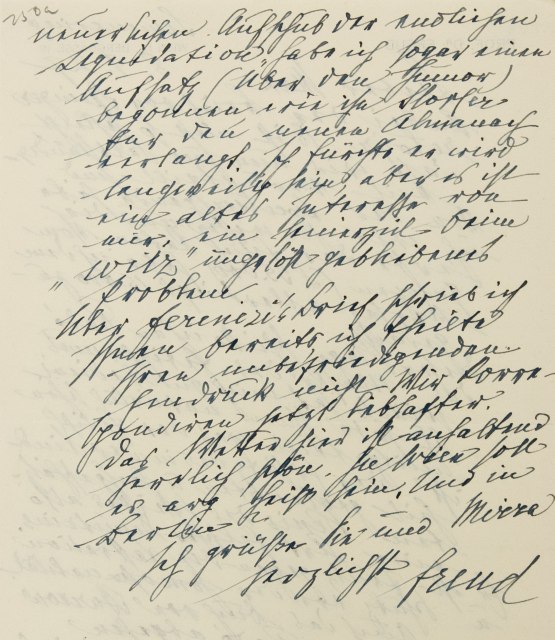 250a
neuerlichen Aufschub der endlichen
Liquidation habe ich sogar einen
Aufsatz (Über den Humor)
begonnen wie ihn Storfer
für den neuen Almanach
verlangt. Ich fürchte er wird
langweilig sein, aber es ist
ein altes Interesse von
mir, ein seinerzeit beim
"Witz" ungelöst gebliebenes
Problem
Über Ferenczi's Brief schrieb ich
Ihnen bereits ich theilte
Ihren unbefriedigenden
Eindruck nicht. Wir korre-
spondiren jetzt lebhafter.
Das Wetter hier ist anhaltend
herrlich schön. In Wien soll
es arg heiß sein. Und in
Berlin?
Ich grüße Sie und Mirra
herzlichst Freud